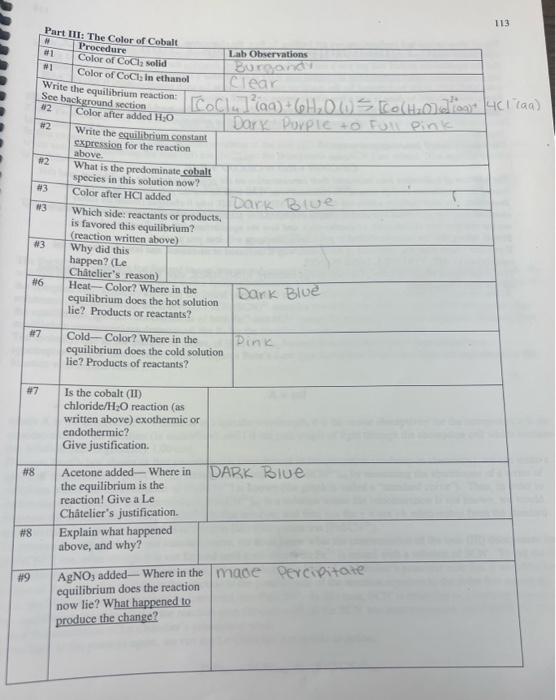 113
Part III: The Color of Cobalt
# Procedure Lab Observations
#1 Color of CoCl₂ solid Burgandy
#1 Color of CoCl₂ in ethanol Clear
Write the equilibrium reaction:
See background section [CoCl₄]²⁻(aq) + 6H₂O(l) ⇋ [Co(H₂O)₆]²⁺(aq) + 4Cl⁻(aq)
#2 Color after added H₂O Dark Purple to Full Pink
#2 Write the equilibrium constant
expression for the reaction
above.
#2 What is the predominate cobalt
species in this solution now?
#3 Color after HCl added Dark Blue
#3 Which side: reactants or products,
is favored this equilibrium?
(reaction written above)
#3 Why did this
happen? (Le
Châtelier's reason)
#6 Heat— Color? Where in the Dark Blue
equilibrium does the hot solution
lie? Products or reactants?
#7 Cold— Color? Where in the Pink
equilibrium does the cold solution
lie? Products of reactants?
#7 Is the cobalt (II)
chloride/H₂O reaction (as
written above) exothermic or
endothermic?
Give justification.
#8 Acetone added— Where in DARK Blue
the equilibrium is the
reaction! Give a Le
Châtelier's justification.
#8 Explain what happened
above, and why?
#9 AgNO₃ added— Where in the made Percipitate
equilibrium does the reaction
now lie? What happened to
produce the change?